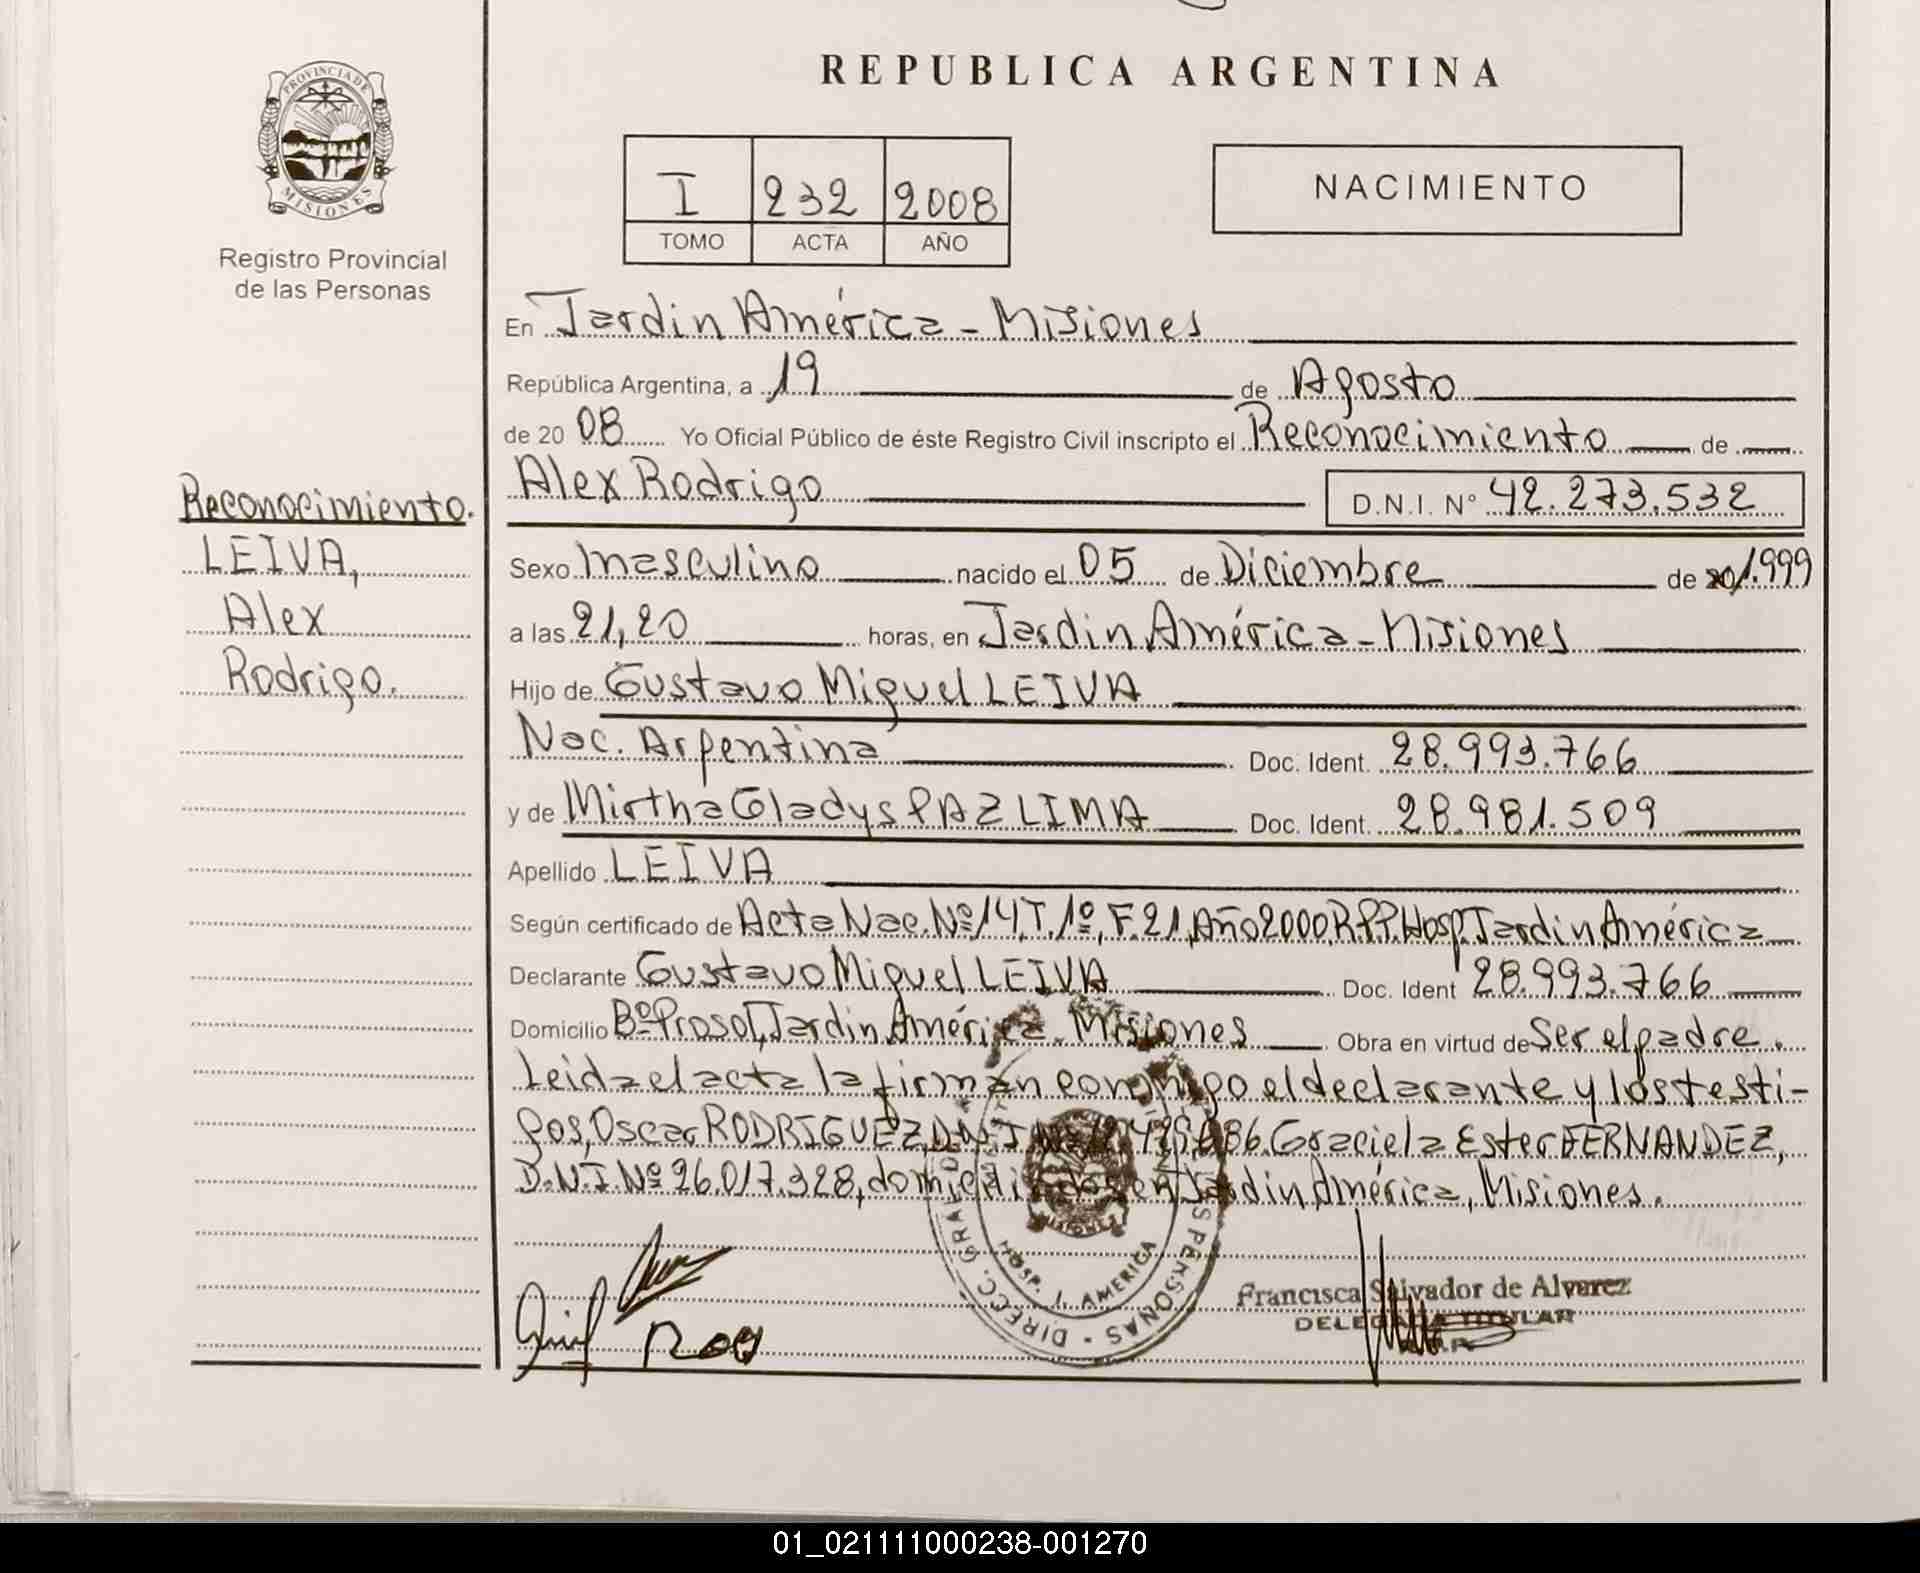 REPUBLICA ARGENTINA
PROVINCIA DE
MISIONES
Registro Provincial
de las Personas
I 232 2008
TOMO ACTA AÑO
NACIMIENTO
En Jardin América - Misiones
República Argentina, a 19 de Agosto
de 20 08 Yo Oficial Público de éste Registro Civil inscripto el Reconocimiento de
Alex Rodrigo D.N.I. N° 42.273.532
Reconocimiento.
LEIVA,
Alex
Rodrigo.
Sexo masculino nacido el 05 de Diciembre de 20 1.999
a las 21,20 horas, en Jardin América - Misiones
Hijo de Gustavo Miguel LEIVA
Nac. Argentina Doc. Ident. 28.993.766
y de Mirtha Gladys PAZ LIMA Doc. Ident. 28.981.509
Apellido LEIVA
Según certificado de Acta Nac. Nº 14, T. 1º, F. 21, Año 2000, R.P.P. Hosp. Jardin América
Declarante Gustavo Miguel LEIVA Doc. Ident 28.993.766
Domicilio Bº Prosol, Jardin América - Misiones Obra en virtud de Ser el padre.
Leida el acta la firman conmigo el declarante y los testi-
gos, Oscar RODRIGUEZ, D.N.I. Nº Graciela Ester FERNANDEZ,
D.N.I. Nº 26.017.328, domiciliados en Jardin América, Misiones.
HOSP. J. AMERICA
DIRECC. GRAL. PERSONAS
Francisca Salvador de Alvarez
DELEGADA TITULAR
01_021111000238-001270